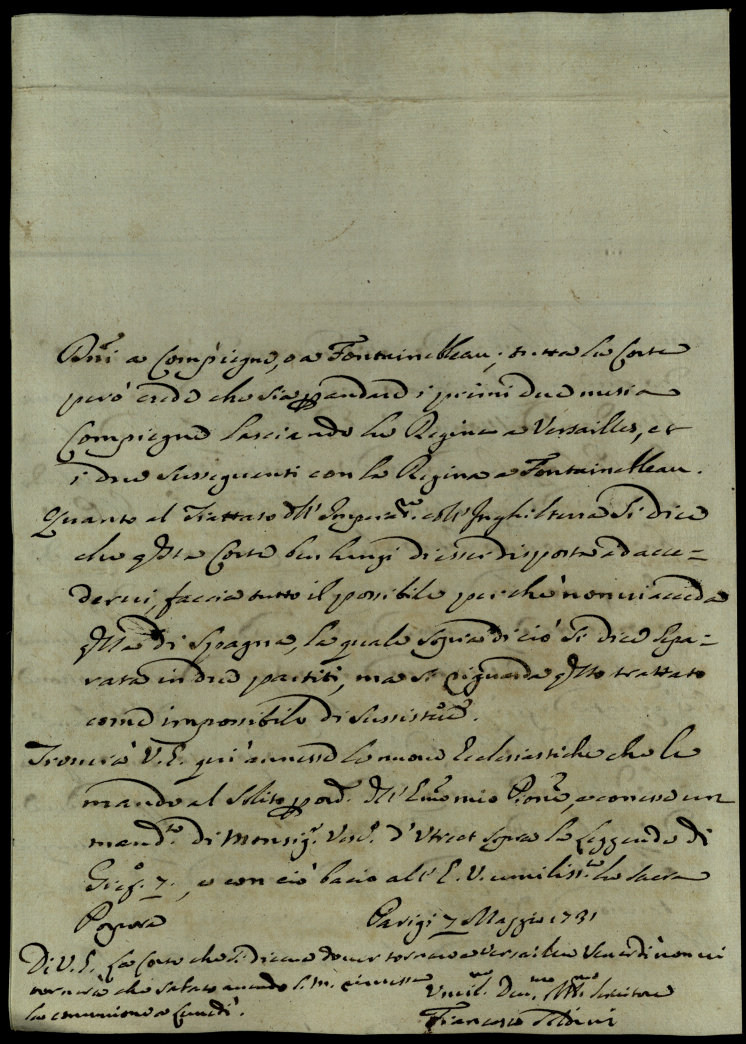 a Compiegne, o a Fontainebleau; tutta la Corte
però crede che sia p andare i primi due mesi a
Compiegne lasciando la Regina a Versailles, et
i due susseguenti con la Regina a Fontainebleau.
Quanto al Trattato dell' Imperat.re coll' Inghilterra Si dice
che q.sta Corte ben lungi di esser disposta ad acce=
dervi, faccia tutto il possibile perche' non vi acceda
q.lla di Spagna, la quale sopra di ciò Si dice sepa=
rata in due partiti, ma si riguarda q.sto trattato
come impossibile di sussist.e
Troverà V.E. qui annesse le nuove Ecclesiastiche che le
mando al Solito p ord.e dell' Em.o mio P.rone, e con esse un
mand.to di Monsig.r Vesc.o d' Utrect sopra la Leggenda di
Greg.o 7., e con ciò bacio all' E.V. umiliss.te la Sacra
Porpora Parigi 7 Maggio 1731
Di V.E. La Corte che si diceva dover tornare a Versailles Venerdì non vi
tornerà che sabato avendo S.M. rimessa
la comunione a Lunedì. Umil.mo Dev.mo Obl.mo Servitore
Francesco